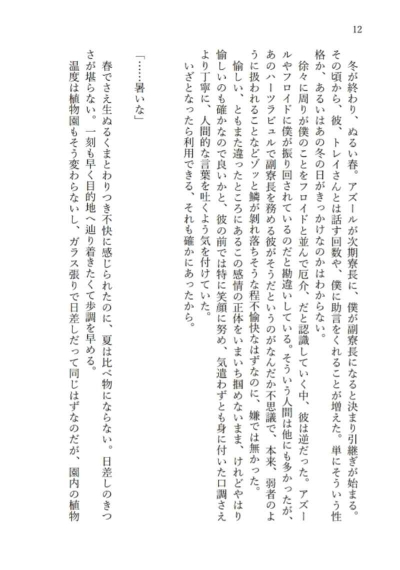 12
冬が終わり、ぬるい春。アズールが次期寮長に、僕が副寮長になると決まり引継ぎが始まる。
その頃から、彼、トレイさんとは話す回数や、僕に助言をくれることが増えた。単にそういう性
格か、あるいはあの冬の日がきっかけなのかはわからない。
徐々に周りが僕のことをフロイドと並んで厄介、だと認識していく中、彼は逆だった。アズー
ルやフロイドに僕が振り回されているのだと勘違いしている。そういう人間は他にも多かったが、
あのハーツラビュルで副寮長を務める彼がそうだというのがなんだか不思議で、本来、弱者のよ
うに扱われることなどゾッと鱗が剝れ落ちそうな程不愉快なはずなのに、嫌では無かった。
愉しい、ともまた違ったところにあるこの感情の正体をいまいち摑めないまま、けれどやはり
愉しいのも確かなので良いかと、彼の前では特に笑顔に努め、気遣わずとも身に付いた口調さえ
より丁寧に、人間的な言葉を吐くよう気を付けていた。
いざとなったら利用できる、それも確かにあったから。
「……暑いな」
春でさえ生ぬるくまとわりつき不快に感じられたのに、夏は比べ物にならない。日差しのきつ
さが堪らない。一刻も早く目的地へ辿り着きたくて歩調を早める。
温度は植物園もそう変わらないし、ガラス張りで日差しだって同じはずなのだが、園内の植物